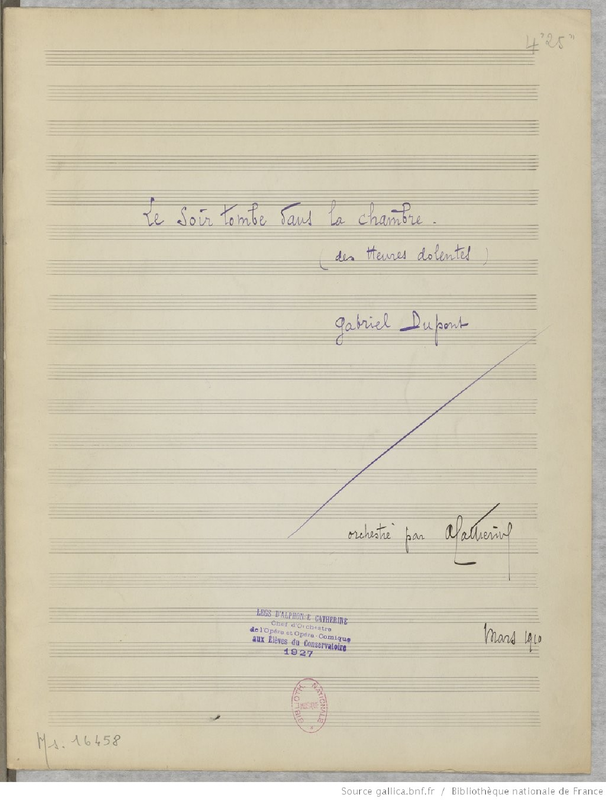 4'25"
Le Soir tombe dans la chambre.
(des Heures dolentes)
Gabriel Dupont
orchestré par ACatherine
LEGS D'ALPHONSE CATHERINE
Chef d'Orchestre
de l'Opéra et Opéra-Comique
aux Élèves du Conservatoire
1927
Mars 1910
BIBLIOTH. NATIONALE
Ms. 16458
Source gallica.bnf.fr / Bibliothèque nationale de France